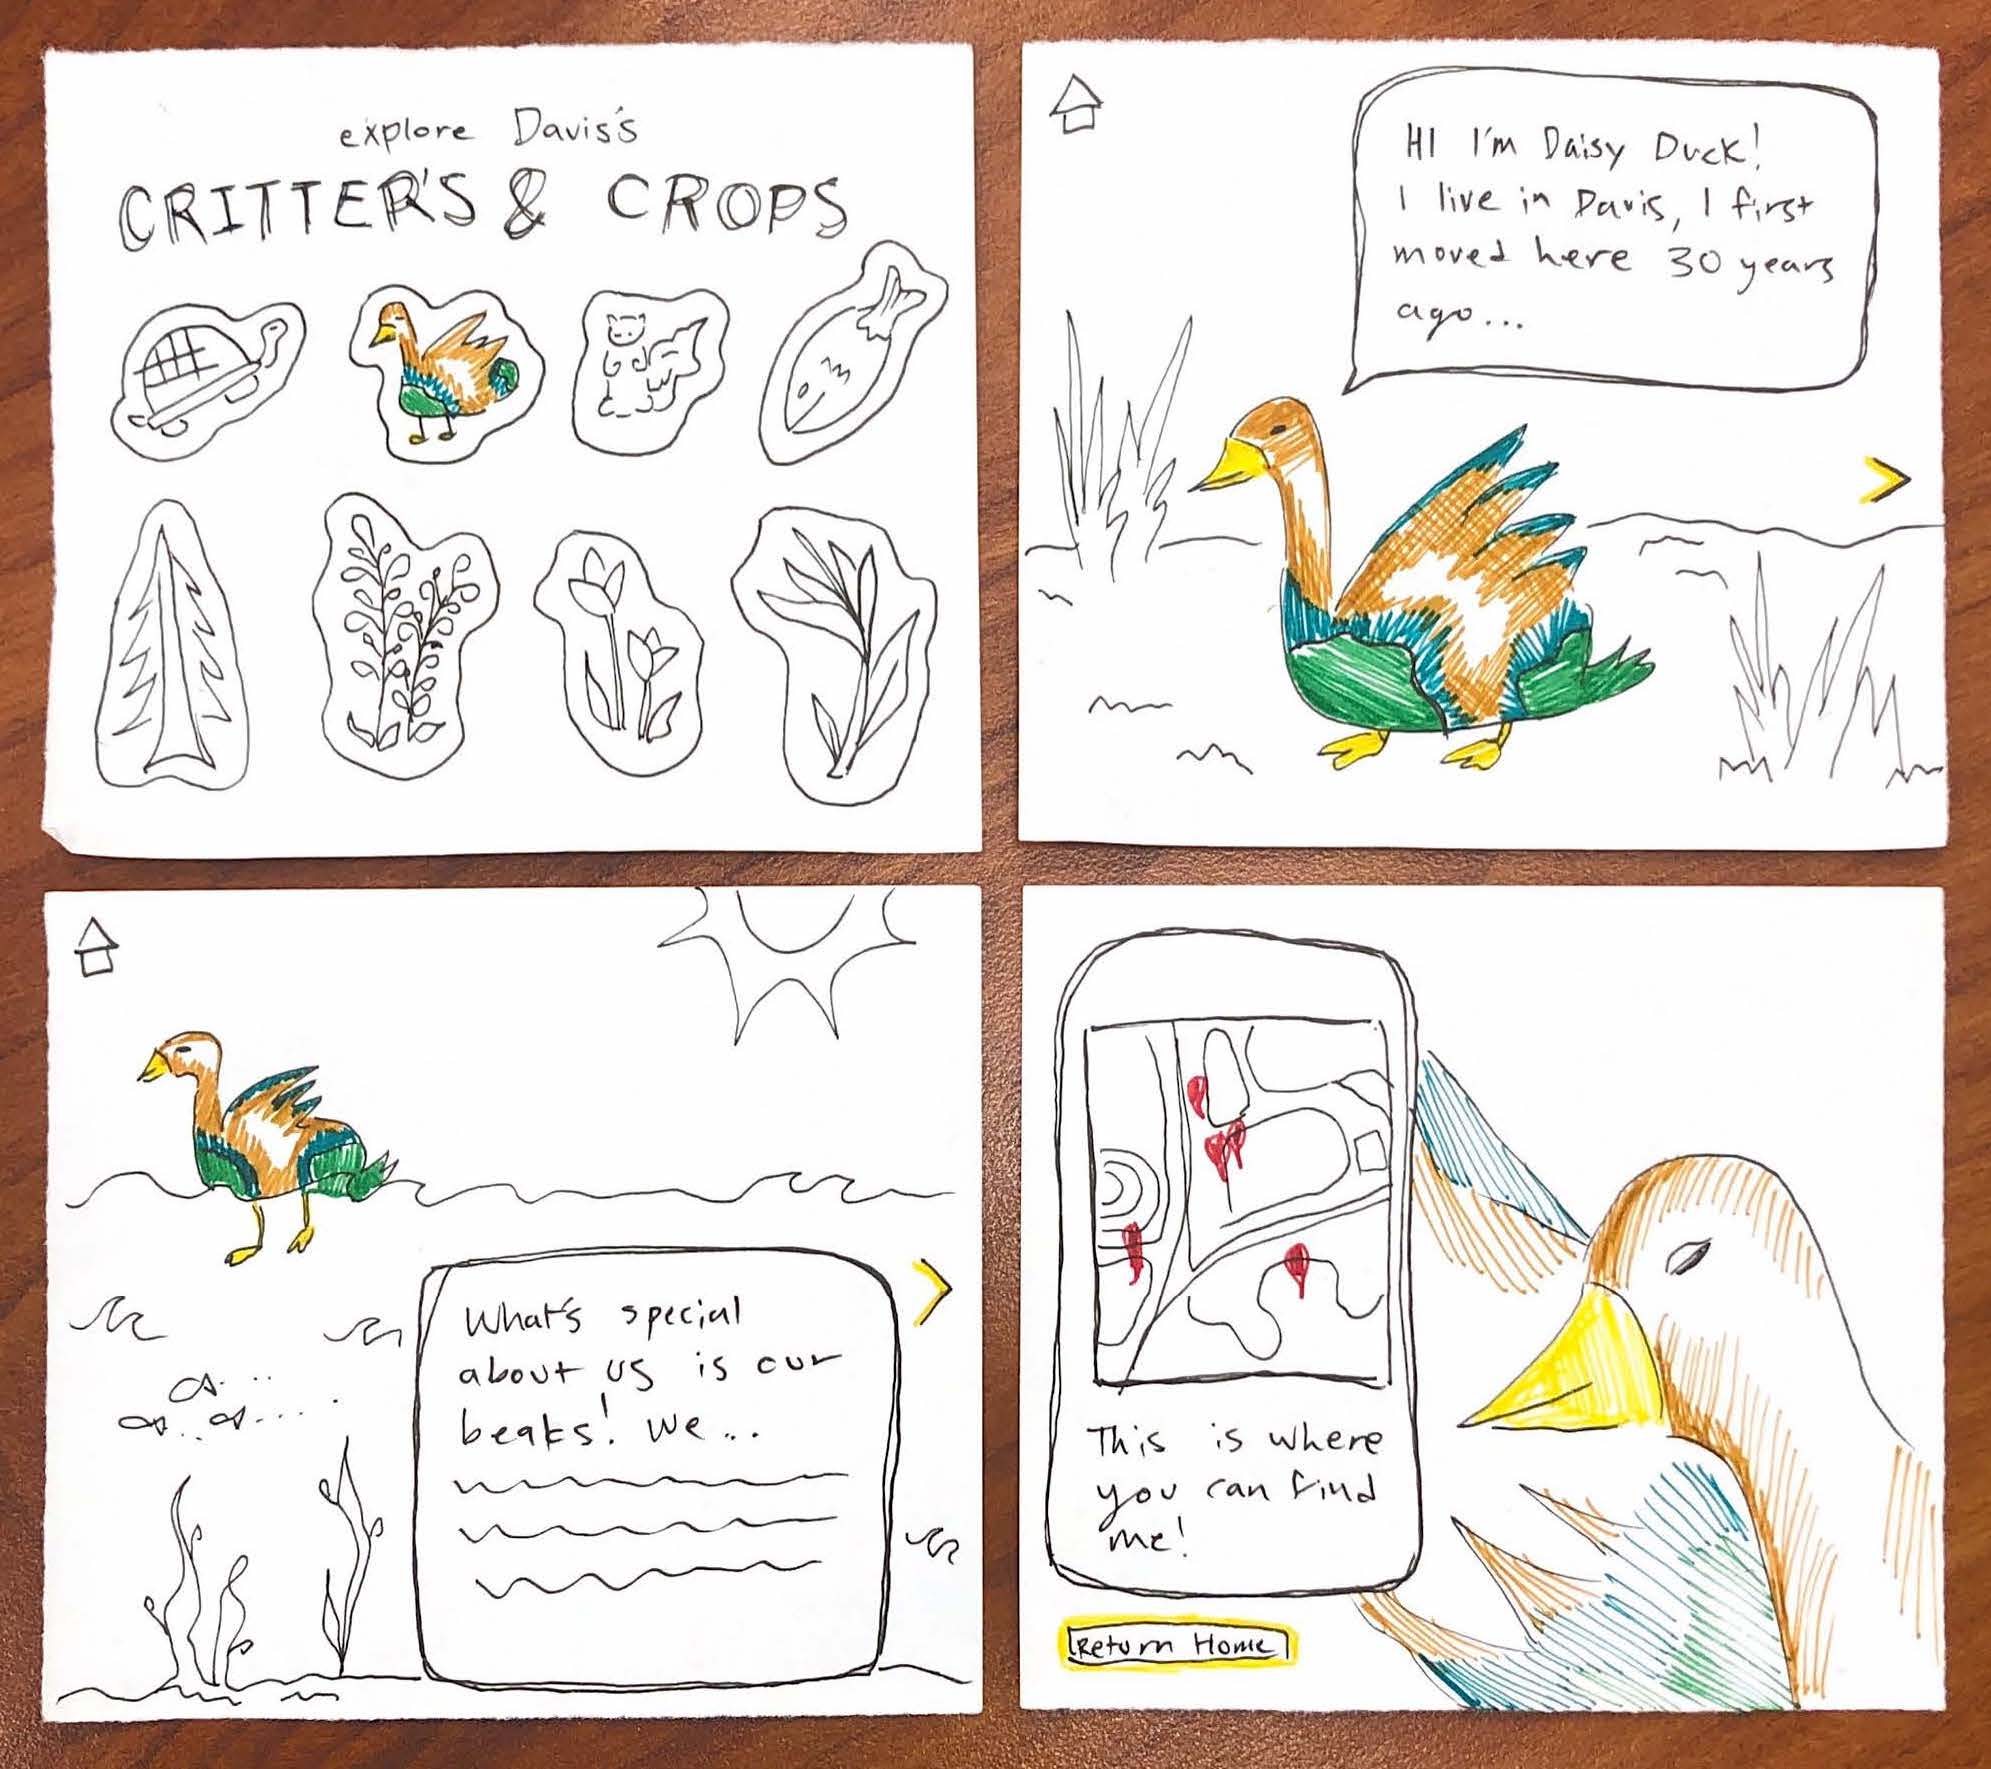 explore Davis's
CRITTER'S & CROPS
HI I'm Daisy Duck!
I live in Davis, I first
moved here 30 years
ago...
What's special
about us is our
beaks! We...
This is where
you can find
me!
Return Home